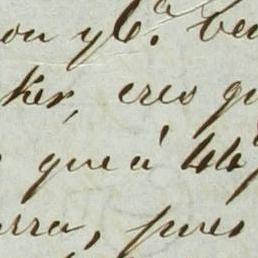 on y 6.ª be
ker, creo q
que á 44
rra, pues